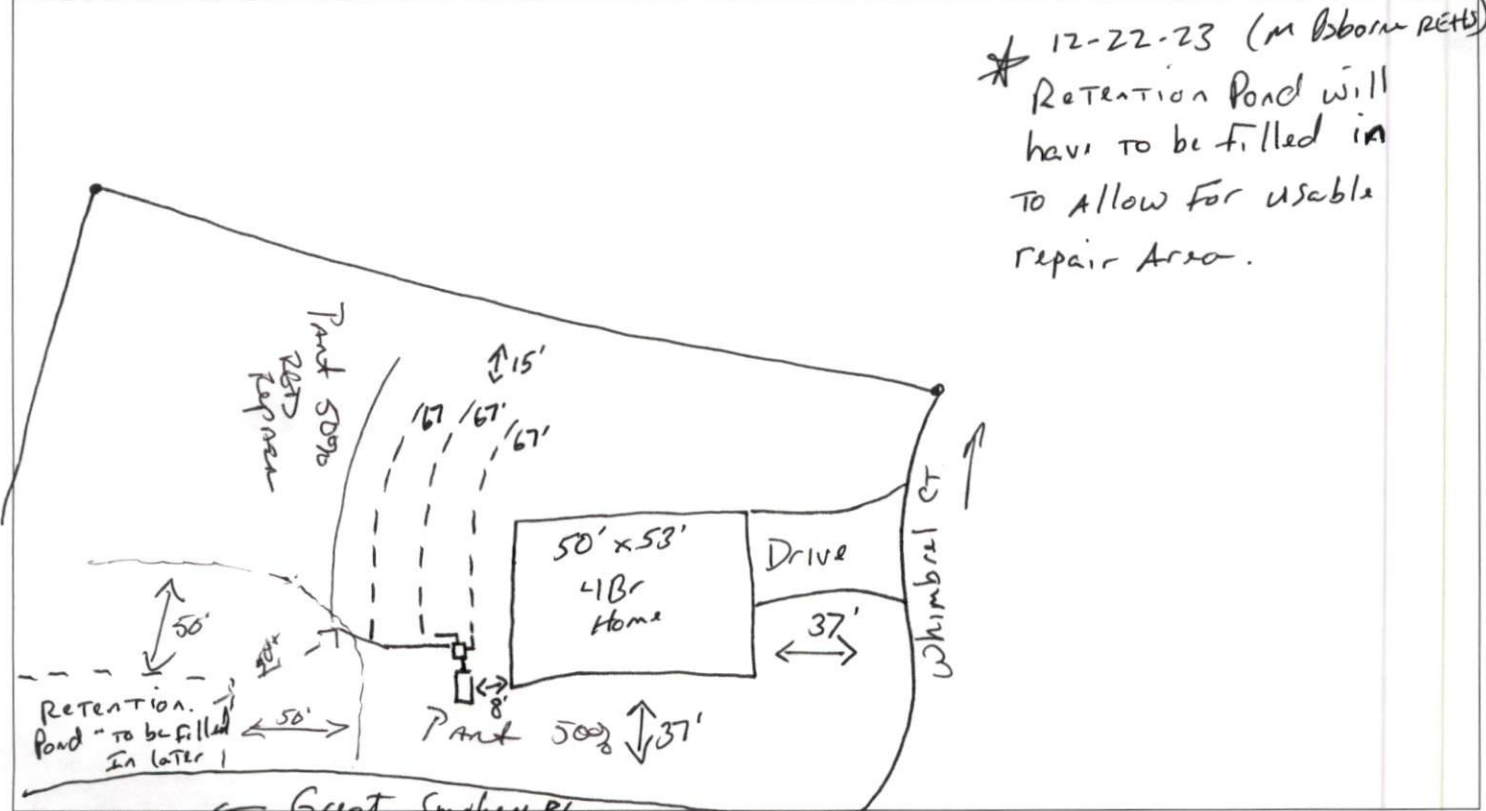 * 12-22-23 (M Osborne REHS)
Retention Pond will
have to be filled in
to Allow for usable
repair Area.
Part 50%
Repair
15'
/67 /67' /67'
50' x 53'
4Br
Home
Drive
37'
Whimbrel CT
50'
Retention
Pond "To be filled
In later
50'
8'
Part 50%
37'
← Great